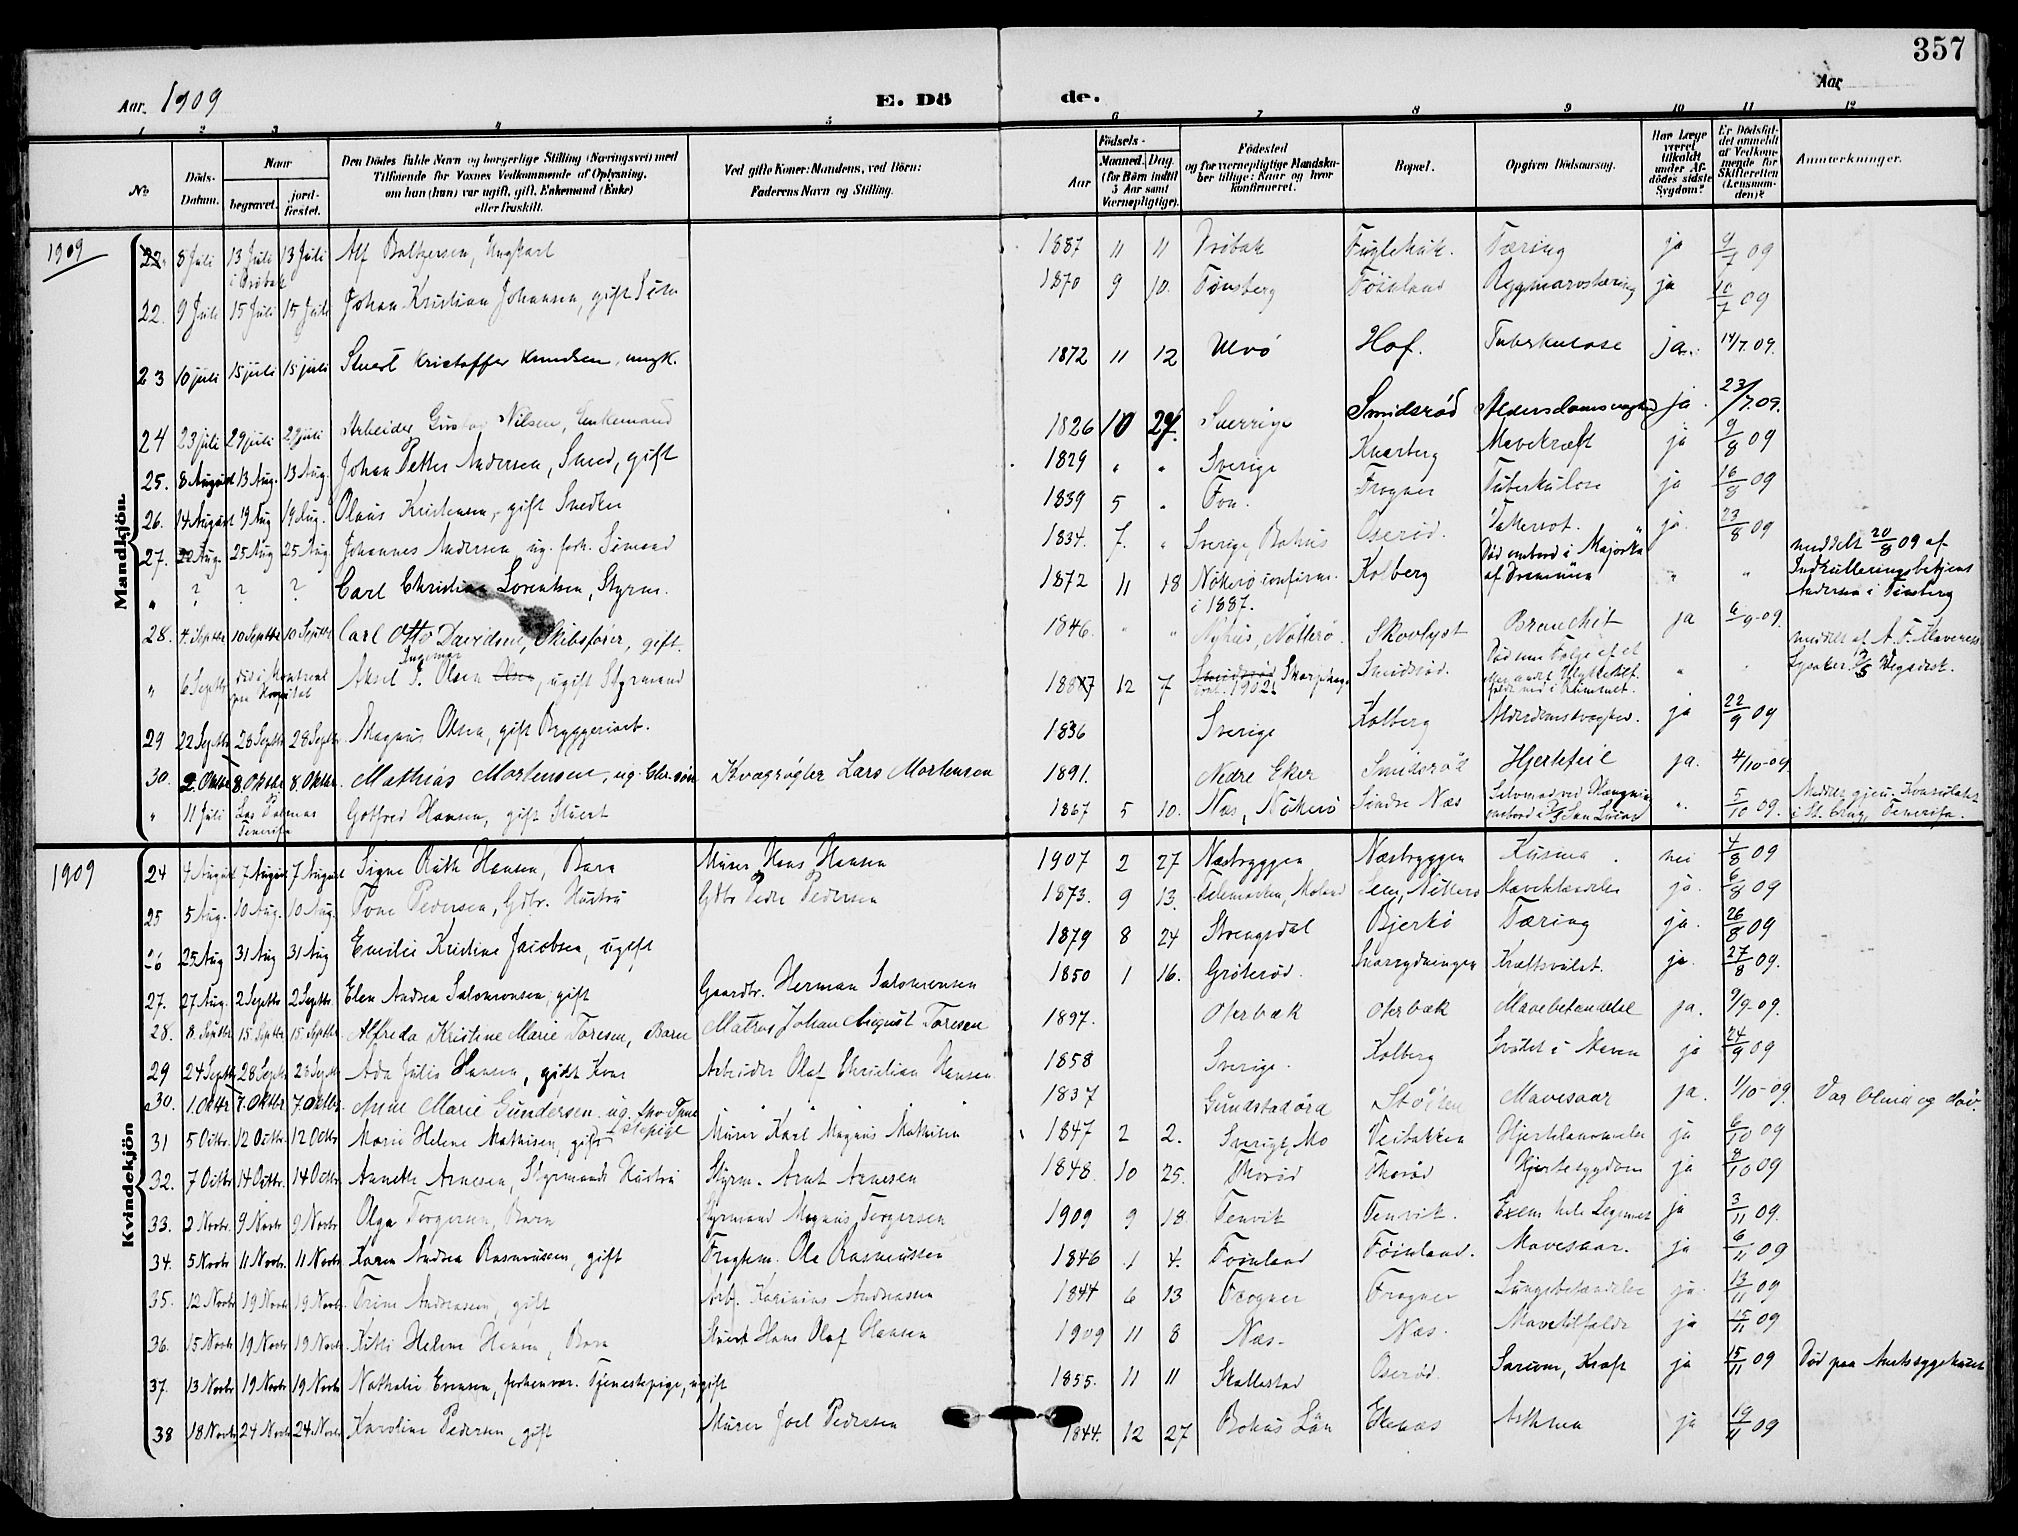 357
Aar. 1909
E. Dö
de.
Aar
1 2 3 4 5 6 7 8 9 10 11 12
No
Döds-Datum.
Naar
begravet.
jord-fæstet.
Den Dödes fulde Navn og borgerlige Stilling (Næringsvei) med
Tilföiende for Voxnes Vedkommende af Oplysning,
om han (hun) var ugift, gift, Enkemand (Enke)
eller fraskilt.
Ved gifte Koner: Mandens, ved Börn:
Faderens Navn og Stilling.
Födsels-
Aar
Maaned. Dag.
(for Börn indtil
5 Aar samt
Værnepligtige).
Födested
og for værnepligtige Mandsku-
ber tillige: Naar og hvor
konfirmeret.
Bopæl.
Opgiven Dödsaarsag.
Har Læge
været
tilkaldt
under Af-
dödes sidste
Sygdom?
Er Dödsfal-
det anmeldt
af Vedkom-
mende for
Skifteretten
(Lensman-
den)?
Anmærkninger.
1909
Mandkjön.
22. 8 Juli 13 Juli i Drøbak 13 Juli Alf Baltzersen, Ungkarl 1887 11 11 Drøbak Fuglehuk. Tæring ja 9/7 09
22. 9 Juli 15 Juli 15 Juli Johan Kristian Johansen, gift 1870 9 10. Tønsberg Føinland Rygmarvstæring ja 10/7 09
23 10 juli 15 juli 15 juli Stuert Kristoffer Knudsen, ungk. 1872 11 12 Ulvø Hof. Tuberkulose ja. 14/7. 09.
24 23 juli 29 juli 29 juli Arbeider Gustav Nilsen, Enkemand 1826 10 24. Sverrige Smidsrød Alderdomssvaghed ja 23/7. 09.
25. 8 August 13 Aug. 13 Aug. Johan Petter Andersen, Smed, gift 1829 " " Sverige Knarberg Mavekræft ja 9/8 09
26. 14 August 19 Aug 19 Aug. Olaus Kristensen, gift Snedker 1839 5 " Fon. Frogner Tuberkulose ja 16/8 09
27. 22 Aug. 25 Aug 25 Aug. Johannes Andersen, ug. forh. Sømand 1834. 7. " Sverige, Bohus Oserød. ja. 23/8 09
" ? ? ? Carl Christian Lorentsen, Styrm. 1872 11 18 Nøtterø confirm. i 1887. Kolberg Død ombord i "Majorka" af Drammen " " meddelt 20/8 09 af Indrulleringsbetjent Andersen i Tønsberg
28. 4. Septbr 10 Septbr 10 Septbr. Carl Otto Davidsen, Skibsfører, gift. 1846. " " Nyhus, Nøtterø. Skovlyst Bronchit ja 6/9 09.
" 6 Septbr død i Montreal paa Hospital Aksel I. Ingemar Olsen, ugift Styrmand 1887 12 7 Smidsrød. Død som Følge af et " " meddelt af A. F.
29 22 Septbr 28 Septbr. 28 Septbr. Magnus Olsen, gift Bryggeriarb. 1836 Sverige Kolberg Alderdomssvaghed. ja 22/9 09
30. 2. Oktbr 8. Oktbr 8. Oktbr. Mathias Mortensen, ug. Kvægrøgter Lars Mortensen 1891. Nedre Eker Smidsrød Hjertefeil ja. 4/10-09
" 11 Juli Las Palmas Tenerifa Gotfred Hansen, gift Stuert 1867 5 10. Næs, Nøtterø Søndre Næs ". 5/10 09. Meddelt gjen. Konsulatet i St. Cruz, Tenerifa.
1909
Kvindekjön
24 4 August 7 August 7 August Signe Ruth Hansen, Barn Murer Hans Hansen 1907 2 27 Næsbryggen Næsbryggen nei 4/8 09
25 5 Aug. 10 Aug. 10 Aug. Tone Pedersen, Gdbr. Hustru Gdbr Peder Pedersen 1873. 9 13. Telemarken, Moland ja. 6/8 09
26 25 Aug 31 Aug 31 Aug Emilie Kristine Jacobsen, ugift 1879 8 24 Strengsdal Bjerkø Tæring ja. 26/8 09
27. 27 Aug. 2 Septbr 2 Septbr. Elen Andrea Salomonsen, gift Gaardbr. Herman Salomonsen 1850 1 16. Grøterød. Snarrydningen Kræftsvulst. ja. 27/8 09.
28. 8. Septbr 15 Septbr 15 Septbr. Alfreda Kristine Marie Toresen, Barn Matros Johan August Toresen 1897. Oterbæk Oterbæk Mavebetændelse ja. 9/9-09.
29 24 Septbr 28 Septbr 28 Septbr Ada Julie Hansen, gift Kone Arbeider Olaf Christian Hansen 1858 Sverige. Kolberg Svulst i Maven ja 24/9 09
30. 1. Oktbr 7. Oktbr 7. Oktbr. Anne Marie Gundersen ug. 1837 Gundstadøra Støiten Mavesaar ja. 1/10-09. Var blind og døv.
31 5 Octbr 12 Octbr. 12 Octbr Marie Helene Mathisen, gift Murer Karl Magnus Mathisen 1847 2 2. Sverige, Mo Veibakken ja 6/10 09
32. 7 Octbr 14 Octbr. 14 Octbr Annette Arnesen, Styrmands Hustru Styrm. Arnt Arnesen 1848. 10 25. Thorød Thorød Hjertesygdom ja 8/10 09
33. 2 Novbr. 9 Novbr 9 Novbr Olga Torgersen, Barn Styrmand Magnus Torgersen 1909 9 18. Tenvik Tenvik. Exem hele Legemet ja 3/11 09.
34. 5 Novbr 11 Novbr. 11 Novbr Karen Andrea Rasmussen, gift Ole Rasmussen 1846 1 4. Føinland Føinland. Mavesaar. ja 6/11 09
35. 12 Novbr 19 Novbr 19 Novbr. Trine Andreasen, gift Arb. Karinius Andreassen 1844 6 13 Frogner Frogner Lungebetændelse ja. 13/11 09
36. 15 Novbr 19 Novbr. 19 Novbr. Helene Hansen, Barn Stuert Hans Olaf Hansen 1909 11 8 Næs. Næs. Mavetilfælde ja 15/11 09
37. 13 Novbr 19 Novbr 19 Novbr Nathalie Evensen, forhenvær. Tjenestepige, ugift 1855. 11 11 Skallestad Oserød. Sarcom, Kræft ja 15/11 09 Død paa Amtssygehuset
38 18 Novbr. 24 Novbr 24 Novbr Karoline Pedersen, gift Murer Joel Pedersen 1844. 12 27 Bohus Län Ekenæs Asthma ja 19/11 09